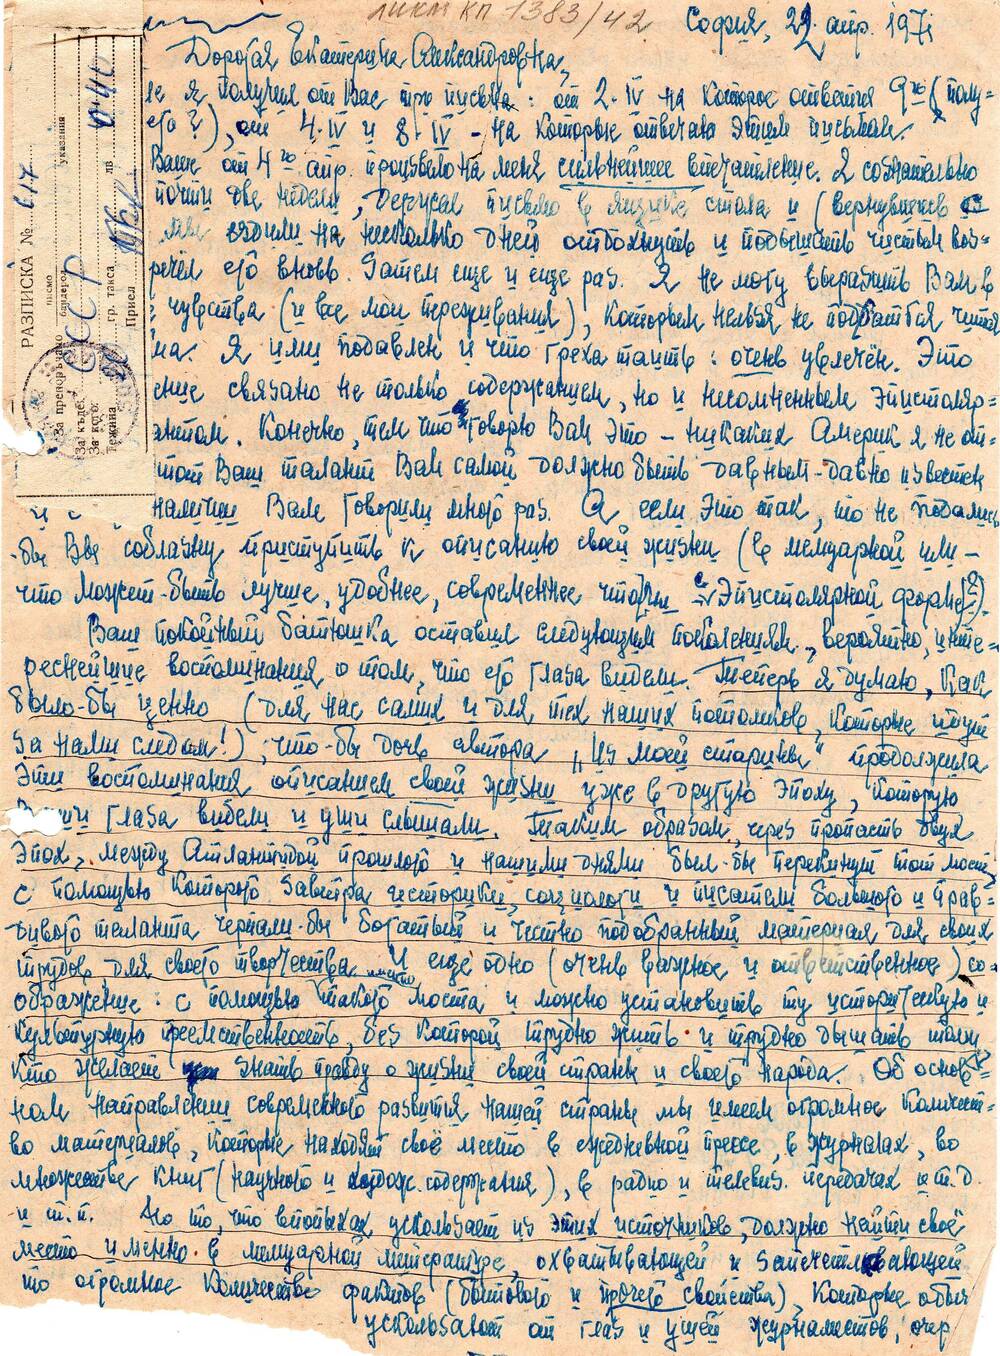 ЛИКМ КП 1383/42
София, 22 апр. 1971
Дорогая Екатерина Александровна,
я получил от Вас три письма: от 2-IV на которое ответил 9го (полу=
его?), от 4-IV и 8-IV - на которые отвечаю этим письмом.
Ваше от 4го апр. произвело на меня сильнейшее впечатление. Я сознательно
почти две недели, держал письмо в ящике стола и (вернувшись
мы ездили на несколько дней отдохнуть и подышать чистым воз=
речёл его вновь. Затем еще и еще раз. Я не могу выразить Вам
чувства (и все мои переживания), которым нельзя не поддаться читая
ма. Я ими подавлен и что греха таить: очень увлечён. Это
ение связано не только содержанием, но и несомненным эпистоляр=
антом. Конечно, тем что я говорю Вам это - никаких Америк я не от=
этот Ваш талант Вам самой должно быть давным-давно известен
и о наличии Вам говорили много раз. А если это так, то не поддались
-бы Вы соблазну приступить к описанию своей жизни (в мемуарной или -
что может-быть лучше, удобнее, современнее что-ли - в эпистолярной форме(?).
Ваш покойный батюшка оставил следующим поколениям, вероятно, инте=
реснейшие воспоминания о том, что его глаза видели. Теперь я думаю, как
было-бы ценно (для нас самих и для тех наших потомков, которые идут
за нами следом!), что-бы дочь автора „Из моей старины" продолжила
эти воспоминания описанием своей жизни уже в другую эпоху, которую
Ваши глаза видели и уши слышали. Таким образом, через пропасть двух
эпох, между Атлантидой прошлого и нашими днями был-бы перекинут тот мост,
с помощью которого завтра историки, социологи и писатели большого и прав=
дивого таланта черпали-бы богатый и честно подобранный материал для своих
трудов, для своего творчества. И еще одно (очень важное и ответственное) со=
ображение: с помощью такого моста и можно установить ту историческую и
культурную преемственность, без которой трудно жить и трудно дышать тому
кто желает знать правду о жизни своей страны и своего народа. Об основ=
ном направлении современного развития нашей страны мы имеем огромное количест=
во материалов, которые находят своё место в ежедневной прессе, в журналах, во
множестве книг (научного и худож. содержания), в радио и телевиз. передачах и т.д.
и т.п. Но то, что впопыхах ускользает из этих источников, должно найти своё
место именно в мемуарной литературе, охватывающей и запечатлевающей
то огромное количество фактов (бытового и прочего свойства), которые обыч
ускользают от глаз и ушей журналистов, очер
РАЗПИСКА № 617
За препоръчано
писмо
бандерол
указания
За къде: СССР
За кого:
Тежина
гр. такса
лв
Приел